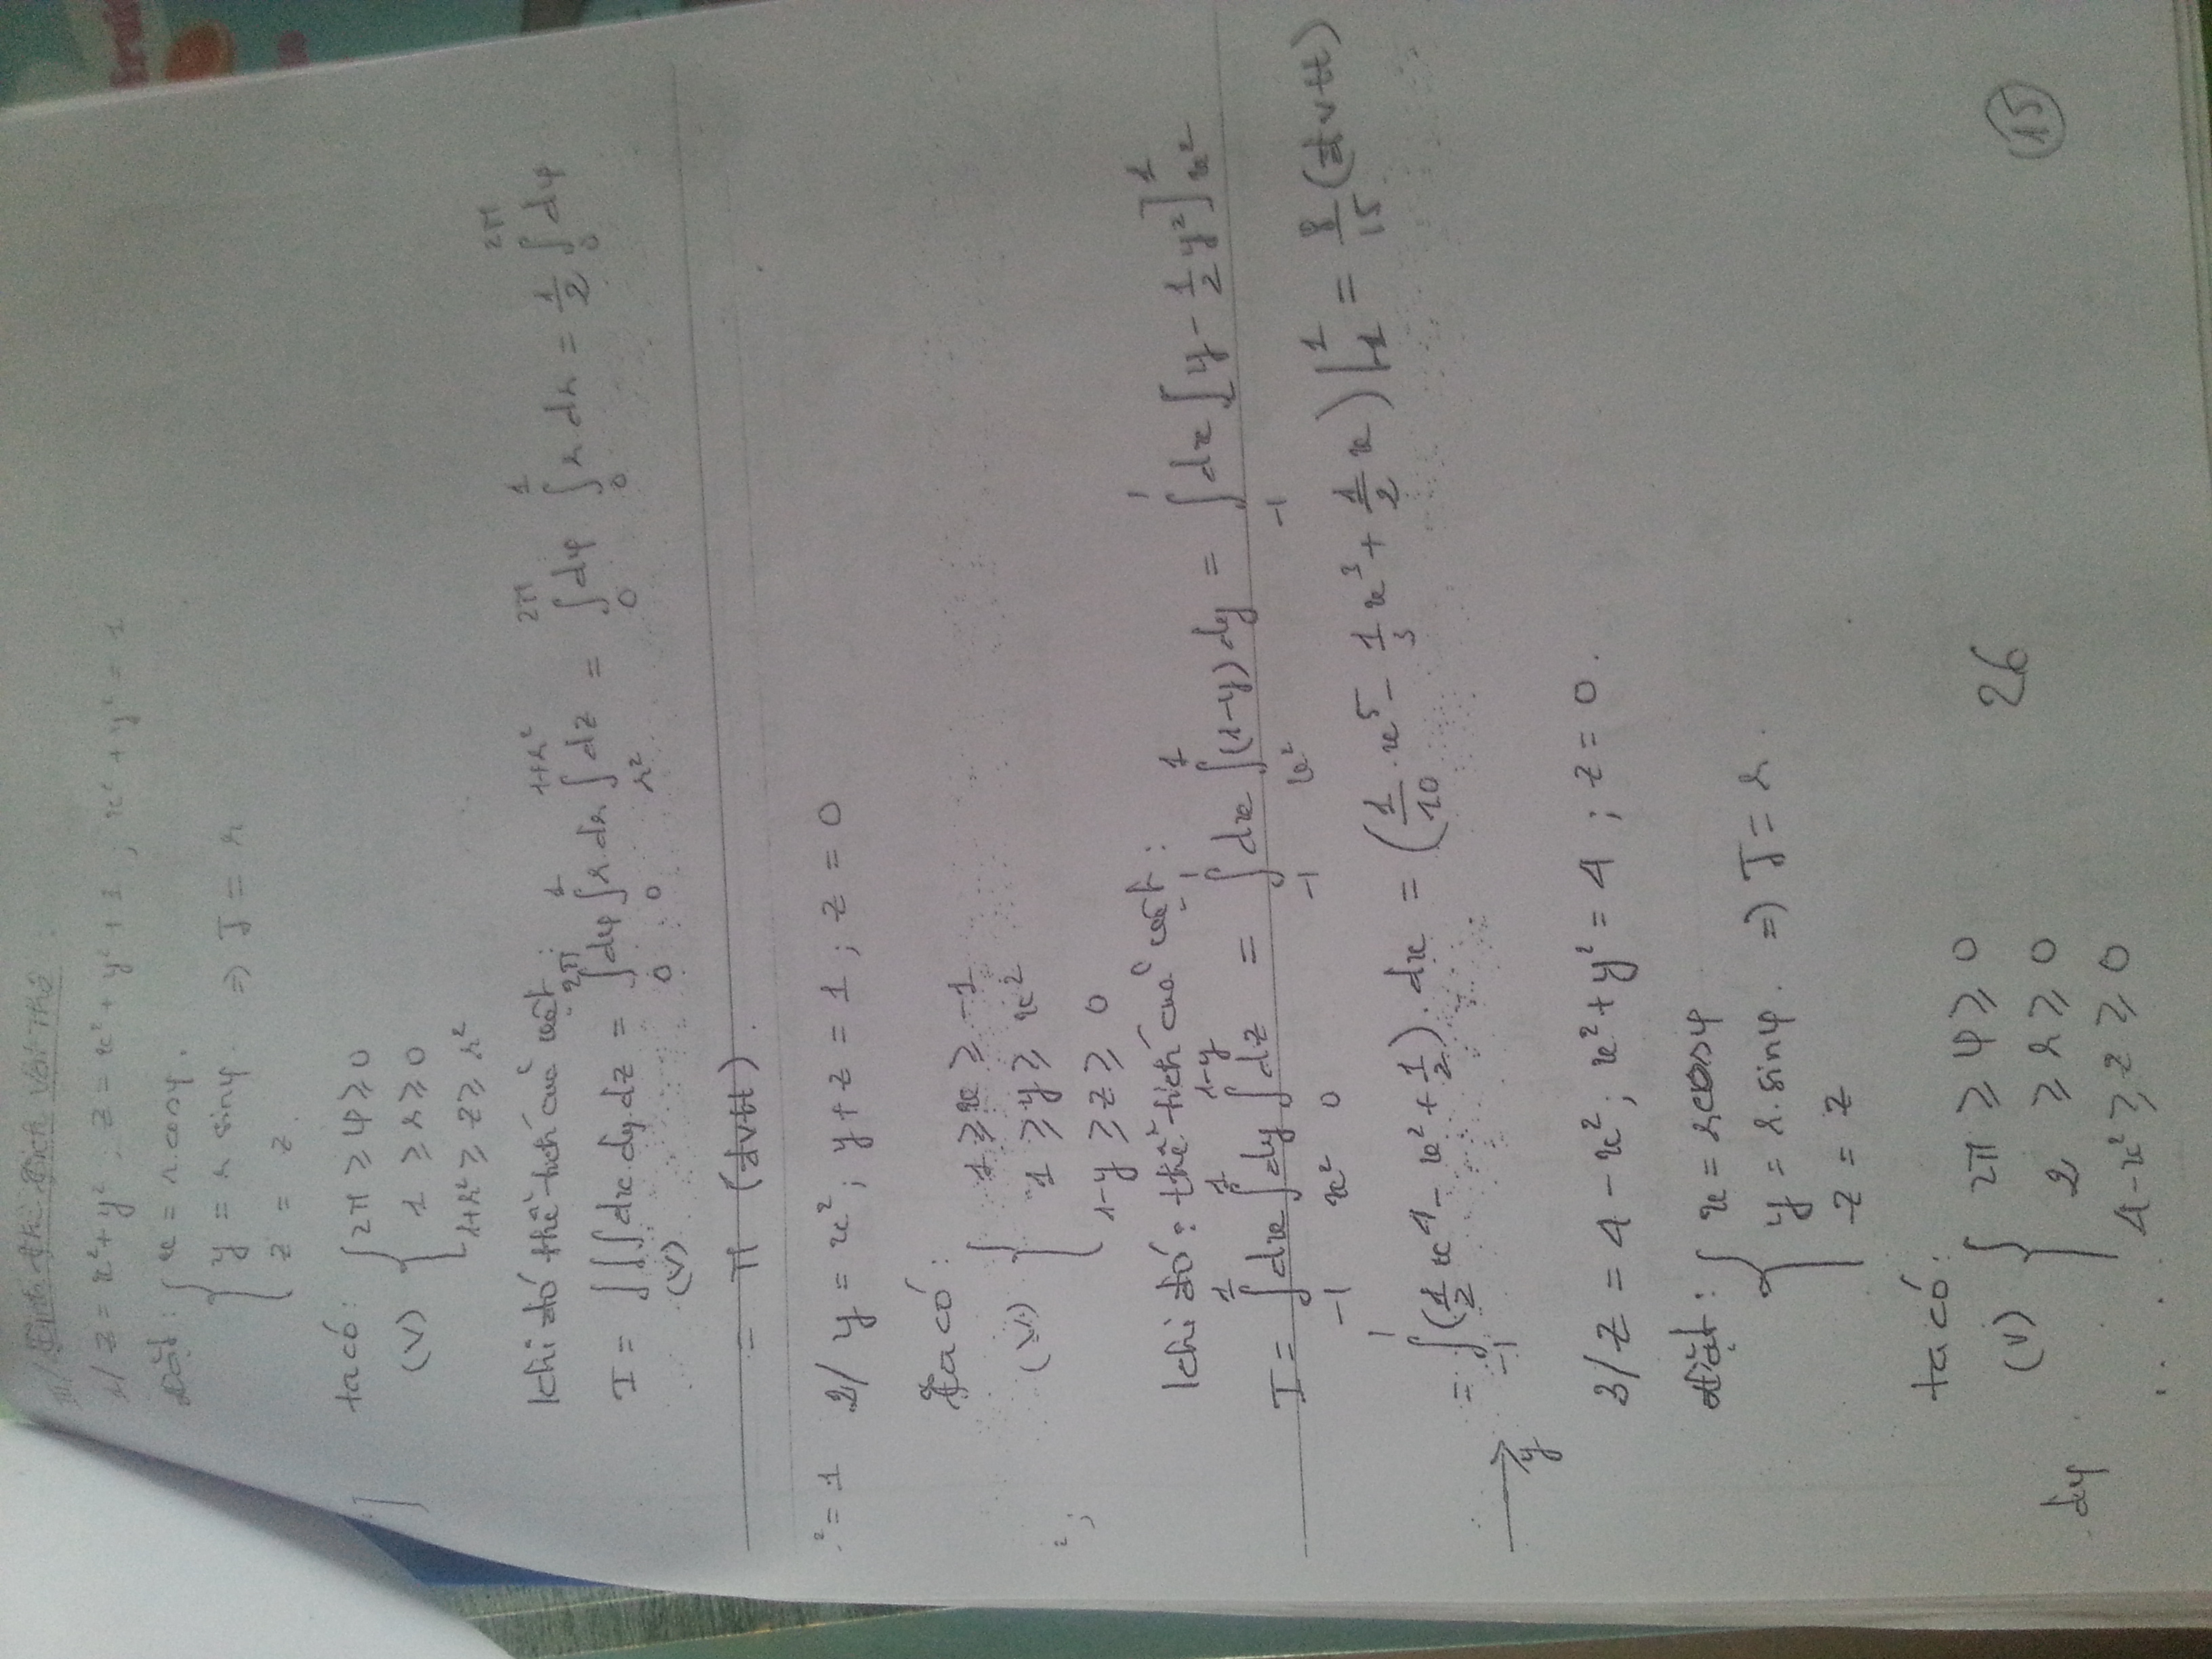 III/ Tính thể tích vật thể
1/ z = x² + y² ; z = x² + y² + 1 ; x² + y² = 1
Đặt : { x = r.cosφ.
y = r sinφ. => J = r
z = z.
ta có :
(V) { 2π ≥ φ ≥ 0
1 ≥ r ≥ 0
1+r² ≥ z ≥ r²
Khi đó thể tích của vật :
I = ∫∫∫(V) dx.dy.dz = ∫₀^2π dφ ∫₀^1 r.dr ∫_r²^1+r² dz = ∫₀^2π dφ ∫₀^1 r.dr = 1/2 ∫₀^2π dφ
= π (đvtt).
² = 1
2/ y = x² ; y + z = 1 ; z = 0
Ta có :
² ;
(V) { 1 ≥ x ≥ -1
1 ≥ y ≥ x²
1-y ≥ z ≥ 0
Khi đó : thể tích của vật :
I = ∫_-1^1 dx ∫_x²^1 dy ∫₀^1-y dz = ∫_-1^1 dx ∫_x²^1 (1-y) dy = ∫_-1^1 dx [y - 1/2 y²]_x²^1
= ∫_-1^1 (1/2 x⁴ - x² + 1/2).dx = (1/10 . x⁵ - 1/3 x³ + 1/2 x)|_-1^1 = 8/15 (đvtt)
y
3/ z = 4 - x² ; x² + y² = 4 ; z = 0.
đặt : { x = rcosφ
y = r.sinφ. => J = r.
z = z
ta có :
(V) { 2π ≥ φ ≥ 0
2 ≥ r ≥ 0
4-x² ≥ z ≥ 0
dφ
26
15